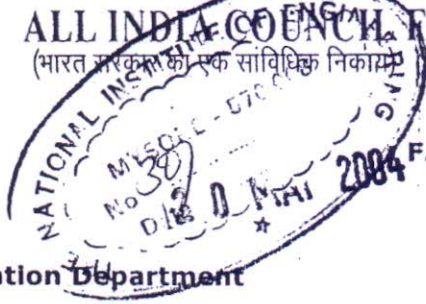 ALL INDIA COUNCIL F
(भारत सरकार का एक सांविधिक निकाय)
NATIONAL INSTITUTE OF ENGINEERING
MYSORE - 570
No 387
20 MAI 2004 F
ation Department